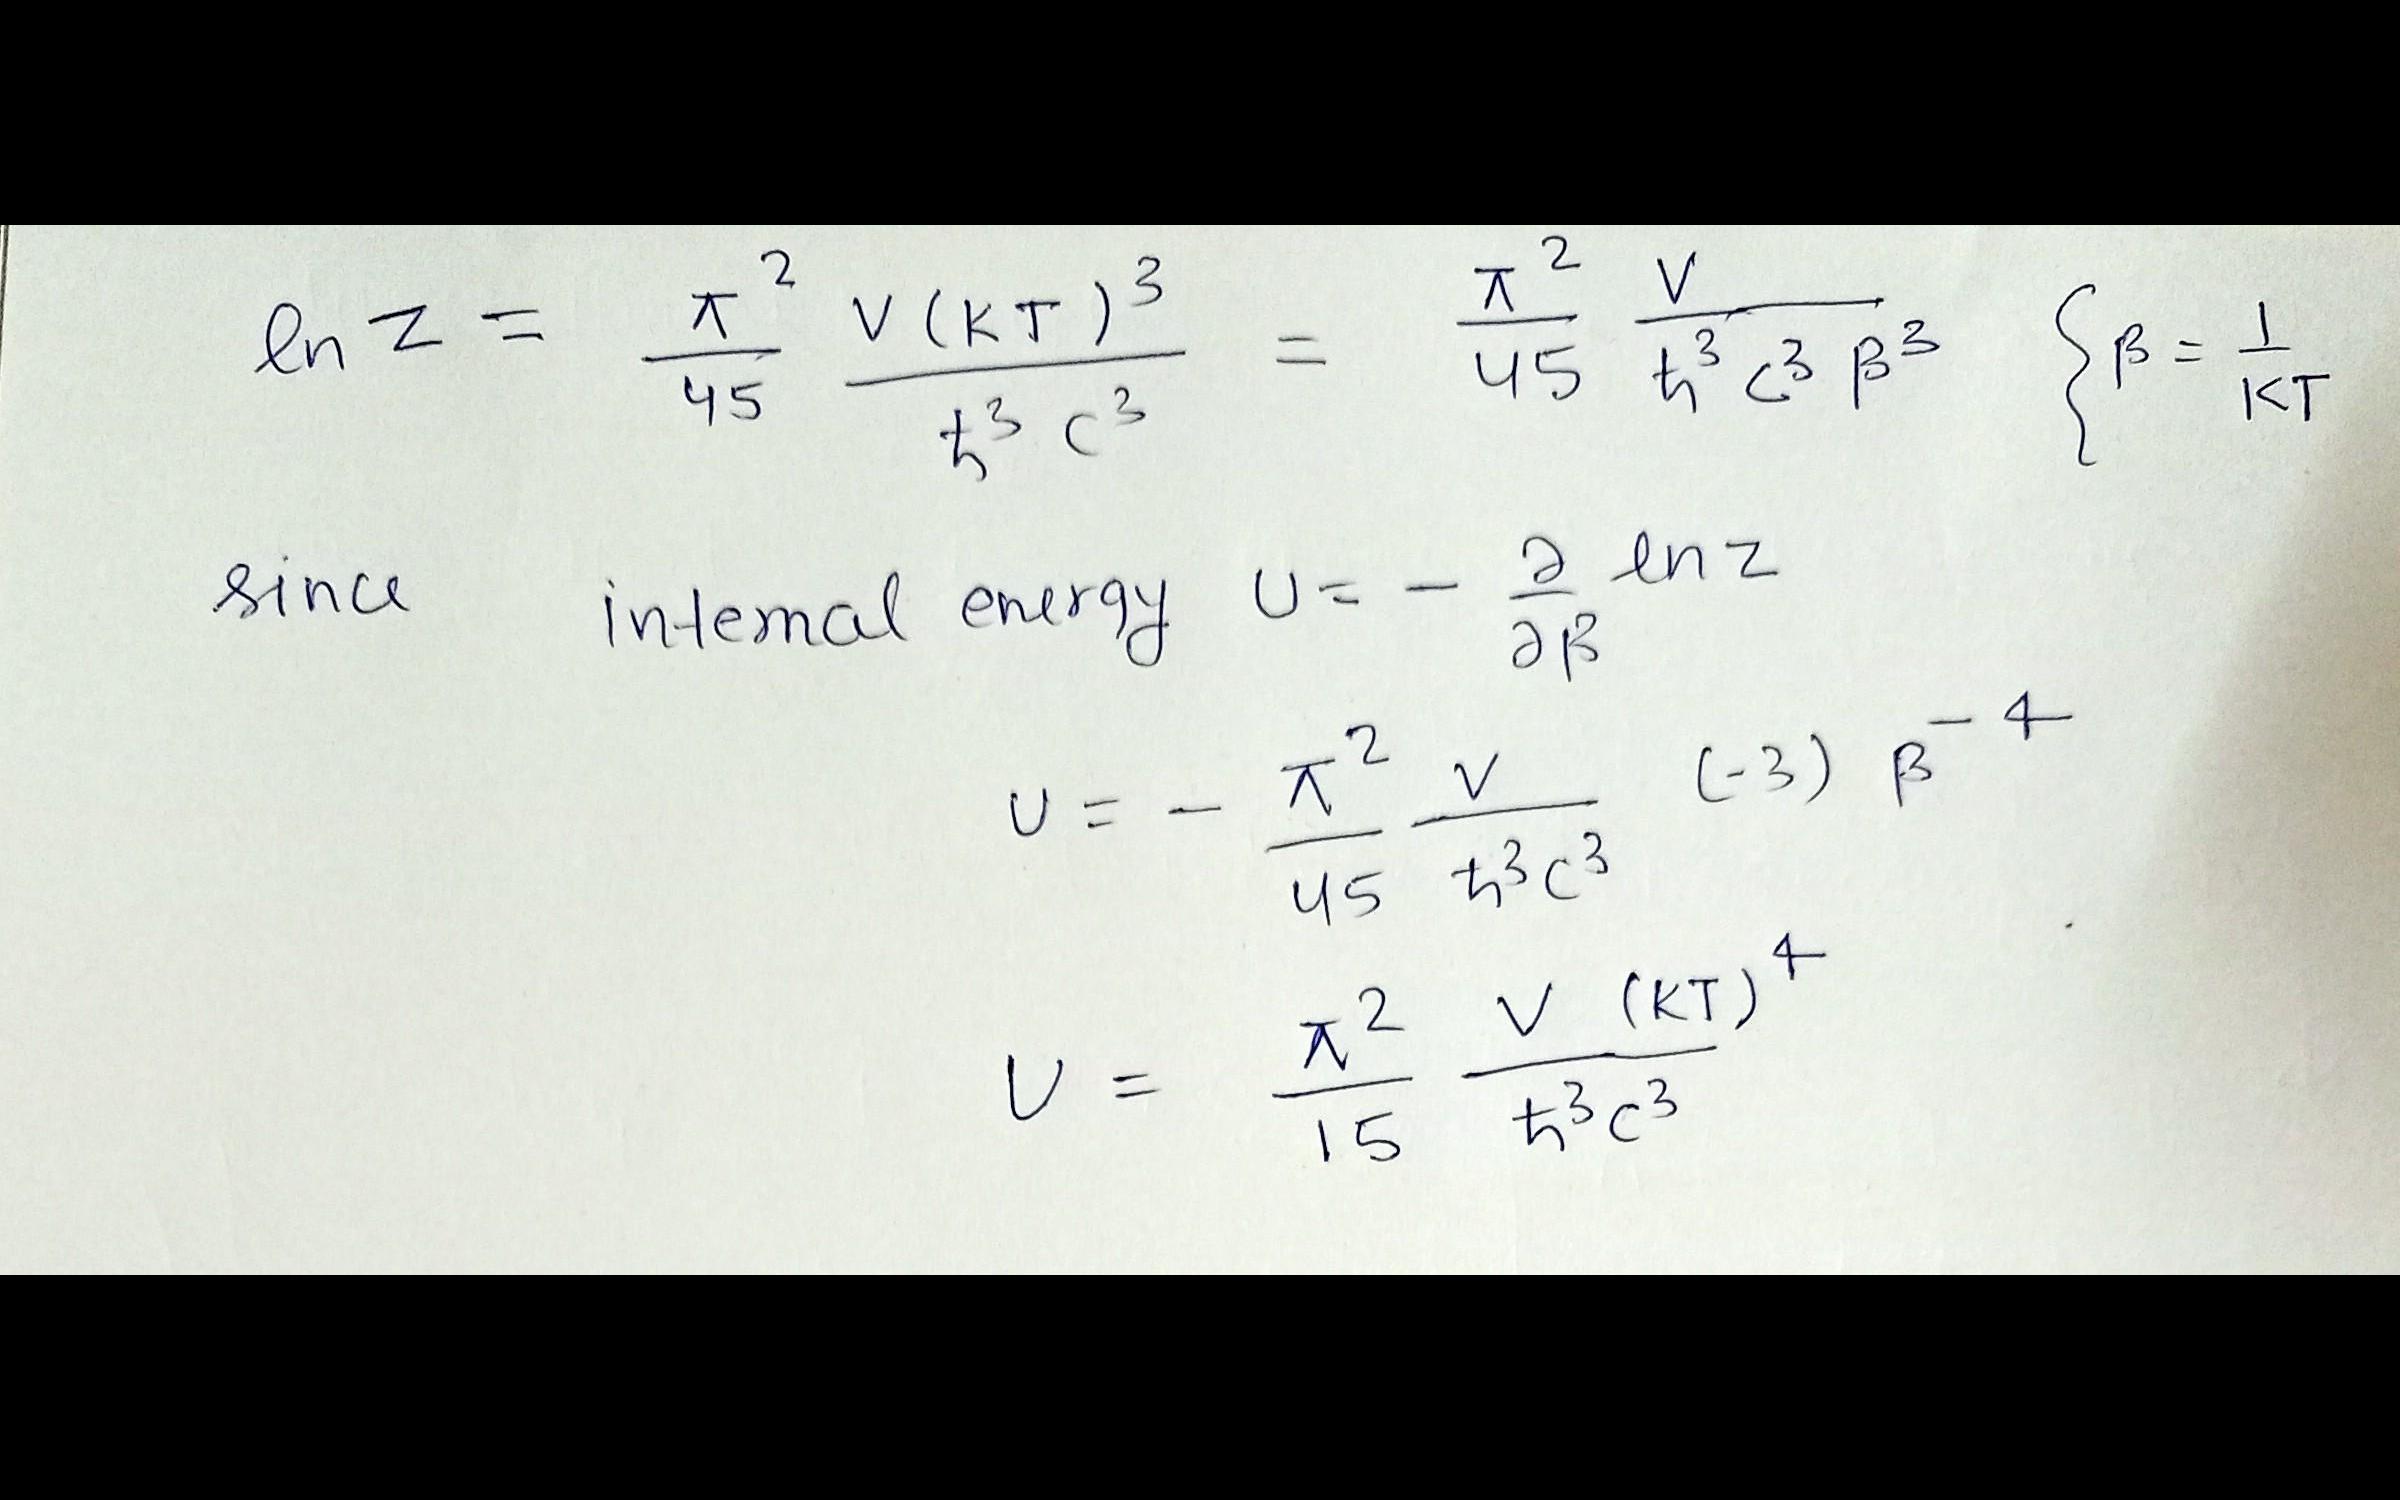 ln Z = π²/45 V(KT)³/ħ³c³ = π²/45 V/ħ³c³β³ { β = 1/KT
since internal energy U = - ∂/∂β ln Z
U = - π²/45 V/ħ³c³ (-3) β⁻⁴
U = π²/15 V (KT)⁴/ħ³c³